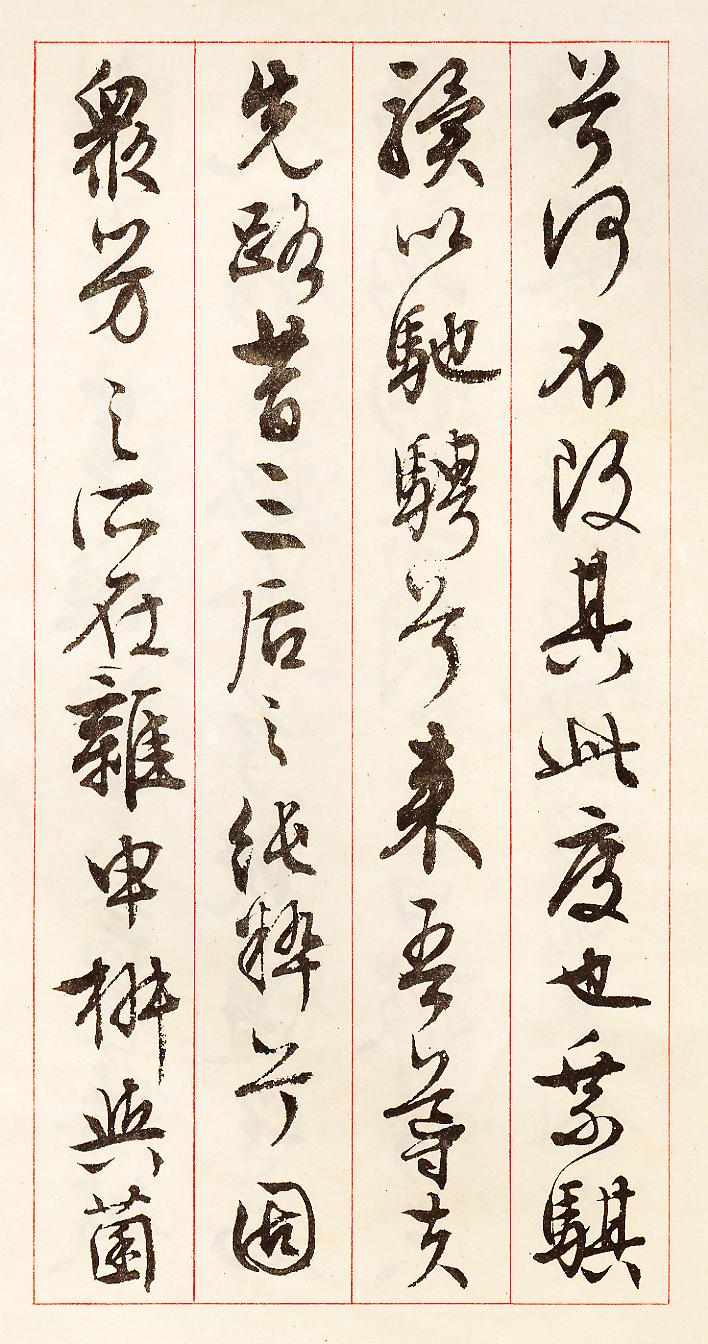 兮何不改其此度也乘騏
驥以馳騁兮來吾導夫
先路昔三后之純粹兮固
衆芳之所在雜申椒與菌